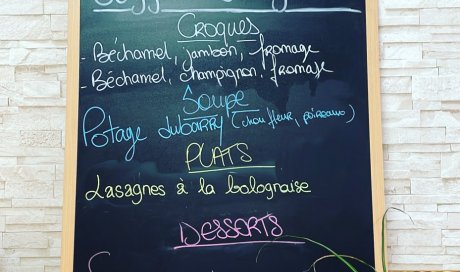 Croques
- Béchamel, jambon, fromage
- Béchamel, champignon, fromage
Soupe
Potage dubarry (chou fleur, poireaux)
PLATS
Lasagnes à la bolognaise
DESSERTS